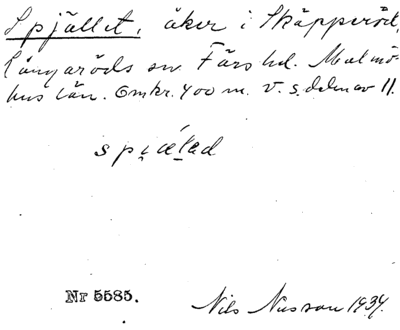 Spjället, åker i Skäpperöd,
Långaröds sn Färs hd. Malmö-
hus län. Omkr. 400 m. V. s. delen av 11.
spi̯ælad
Nr 5585.
Nils Nilsson 1934.